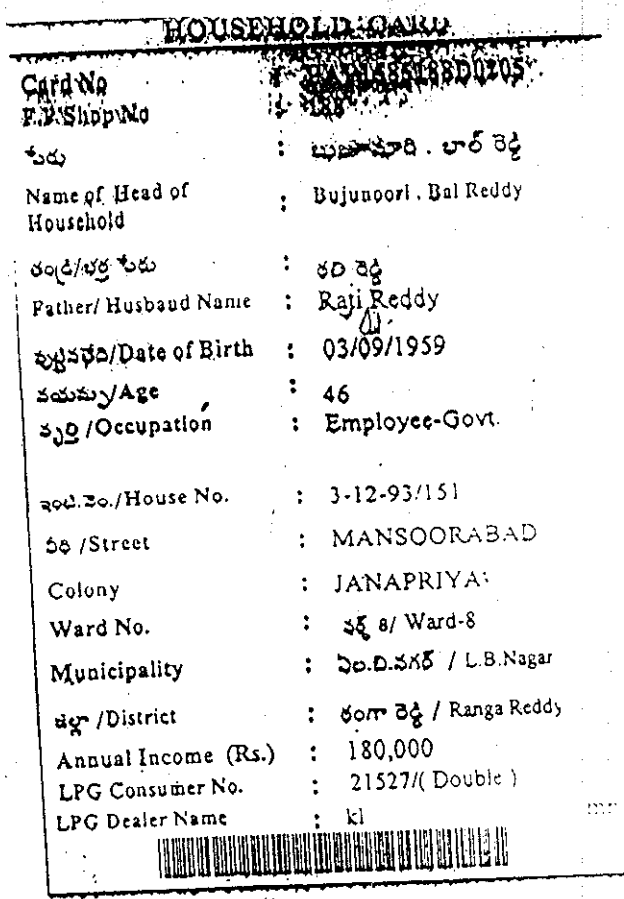 HOUSEHOLD CARD
Card No :
F.P.Shop No : 188
పేరు : బుజునూరి . బాల్ రెడ్డి
Name of Head of Household : Bujunoori . Bal Reddy
తండ్రి/భర్త పేరు : రాజి రెడ్డి
Father/ Husband Name : Raji Reddy
పుట్టినతేది/Date of Birth : 03/09/1959
వయస్సు/Age : 46
వృత్తి /Occupation : Employee-Govt.
ఇంటి.నెం./House No. : 3-12-93/151
వీధి /Street : MANSOORABAD
Colony : JANAPRIYA
Ward No. : వార్డ్ 8/ Ward-8
Municipality : ఎల.బి.నగర్ / L.B.Nagar
జిల్లా /District : రంగా రెడ్డి / Ranga Reddy
Annual Income (Rs.) : 180,000
LPG Consumer No. : 21527/( Double )
LPG Dealer Name : kl